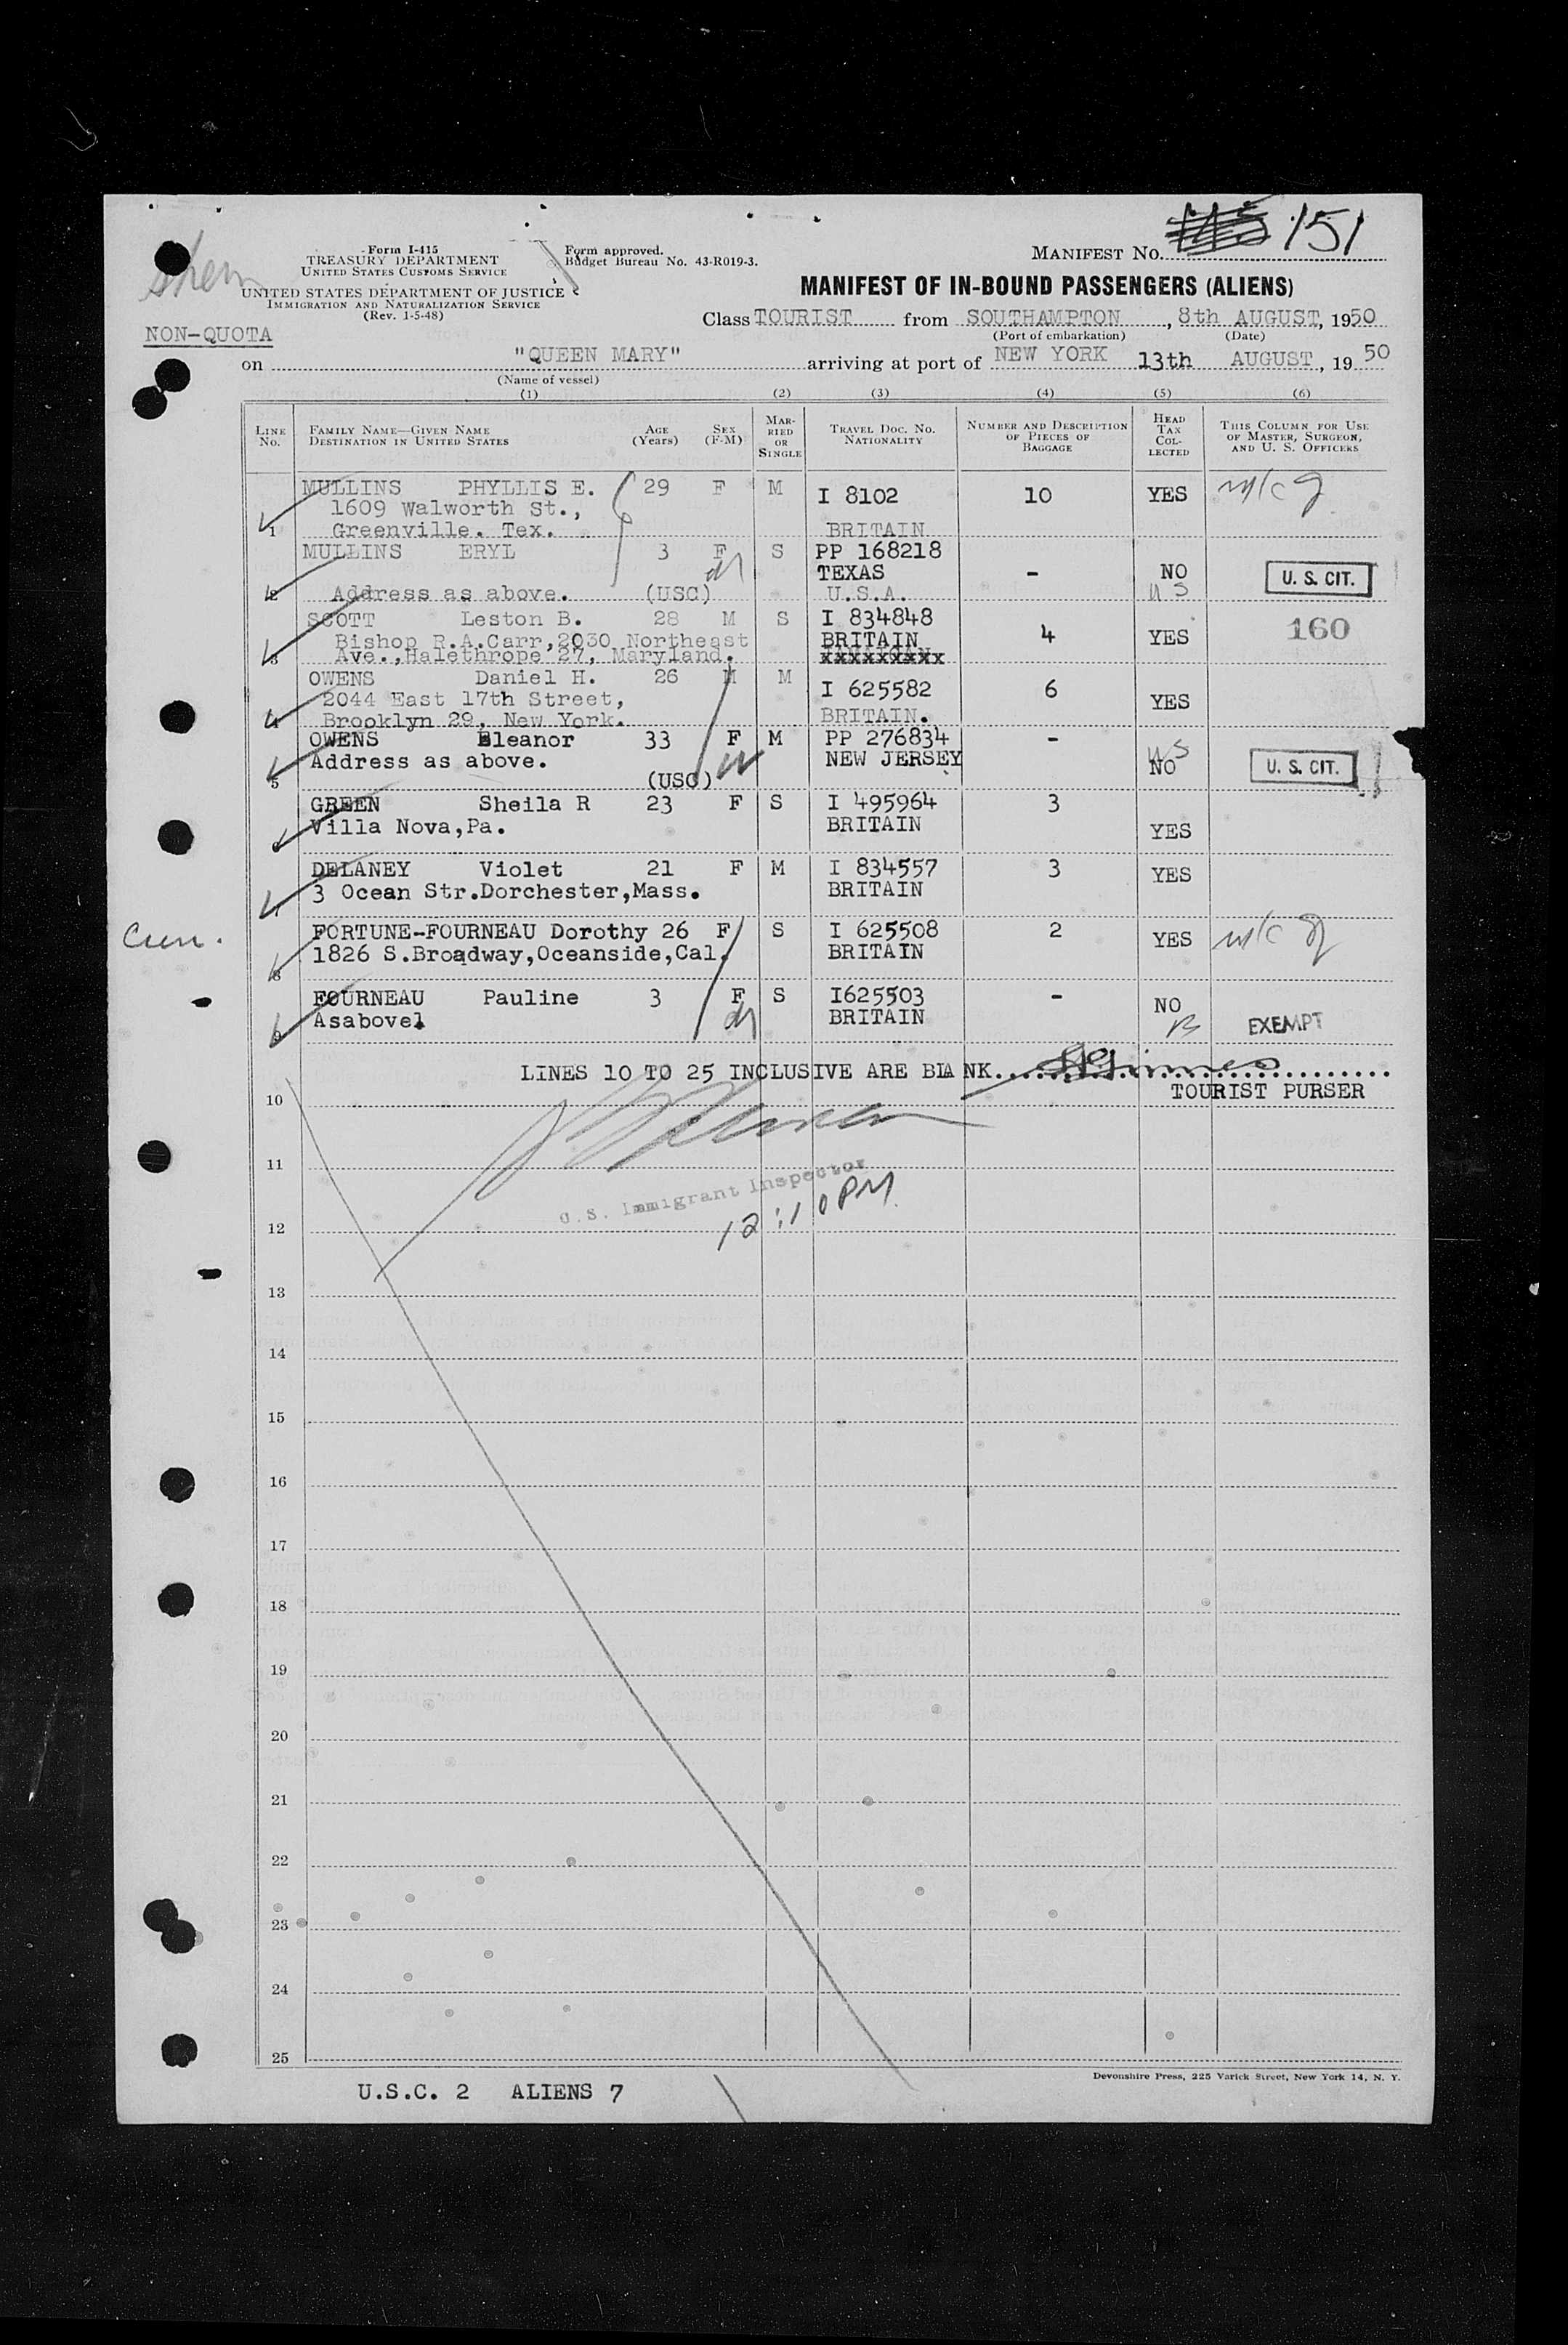 Form I-415
TREASURY DEPARTMENT
UNITED STATES CUSTOMS SERVICE
UNITED STATES DEPARTMENT OF JUSTICE
IMMIGRATION AND NATURALIZATION SERVICE
(Rev. 1-5-48)
Form approved.
Budget Bureau No. 43-R019-3.
MANIFEST No. 151
MANIFEST OF IN-BOUND PASSENGERS (ALIENS)
NON-QUOTA
Class TOURIST from SOUTHAMPTON, 8th AUGUST, 1950
(Port of embarkation) (Date)
on "QUEEN MARY" arriving at port of NEW YORK 13th AUGUST, 1950
(Name of vessel)
(1) (2) (3) (4) (5) (6)
LINE No. FAMILY NAME—GIVEN NAME DESTINATION IN UNITED STATES AGE (Years) SEX (F-M) MARRIED OR SINGLE TRAVEL DOC. NO. NATIONALITY NUMBER AND DESCRIPTION OF PIECES OF BAGGAGE HEAD TAX COLLECTED THIS COLUMN FOR USE OF MASTER, SURGEON, AND U. S. OFFICERS
MULLINS PHYLLIS E. 29 F M I 8102 10 YES
1609 Walworth St.,
1 Greenville. Tex. BRITAIN
MULLINS ERYL 3 F S PP 168218
TEXAS - NO U. S. CIT.
2 Address as above. (USC) U.S.A. US
SCOTT Leston B. 28 M S I 834848 160
Bishop R.A.Carr,2030 Northeast BRITAIN 4 YES
3 Ave.,Halethrope 27, Maryland.
OWENS Daniel H. 26 M M I 625582 6 YES
2044 East 17th Street,
4 Brooklyn 29, New York. BRITAIN.
OWENS Eleanor 33 F M PP 276834 - US
Address as above. NEW JERSEY NO U. S. CIT.
5 (USC)
GREEN Sheila R 23 F S I 495964 3
6 Villa Nova,Pa. BRITAIN YES
DELANEY Violet 21 F M I 834557 3 YES
7 3 Ocean Str.Dorchester,Mass. BRITAIN
Cun.
FORTUNE-FOURNEAU Dorothy 26 F S I 625508 2 YES
8 1826 S.Broadway,Oceanside,Cal. BRITAIN
FOURNEAU Pauline 3 F S I625503 - NO
9 Asabove. BRITAIN EXEMPT
LINES 10 TO 25 INCLUSIVE ARE BLANK
TOURIST PURSER
10
11
U.S. Immigrant Inspector
12:10 PM
12
13
14
15
16
17
18
19
20
21
22
23
24
25
Devonshire Press, 225 Varick Street, New York 14, N. Y.
U.S.C. 2 ALIENS 7